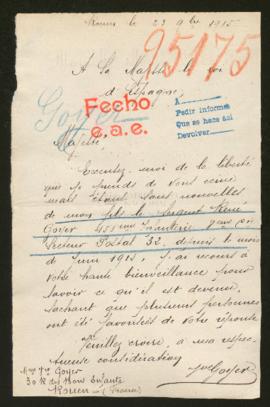 Rouen le 23 9bre 1915
95175
A Sa Majesté le roi
d'Espagne,
Goyer
Fecho
e.a.e.
A
Pedir informes
Que se hace así
Devolver
Majesté,
Excusez-moi de la liberté
que je prends de vous écrire
mais étant sans nouvelles
de mon fils le sergent René
Goyer 405eme Infanterie 9eme Cie
Secteur Postal 32, depuis le mois
de Juin 1915, j'ai recours à
votre haute bienveillance pour
savoir ce qu'il est devenu,
sachant que plusieurs personnes
ont été favorisées de votre réponse
Veuillez croire, à ma respec-
tueuse considération
Goyer
Mme Vve Goyer
30 R des Bons Enfants
Rouen (France)